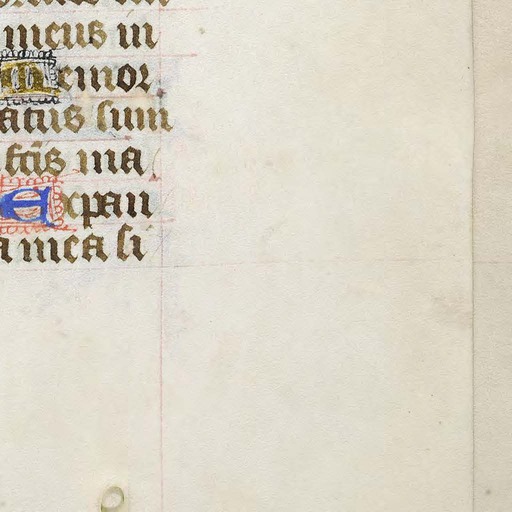 meus in
Memor
atus sum
fc̃is ma
Expan
a mea si